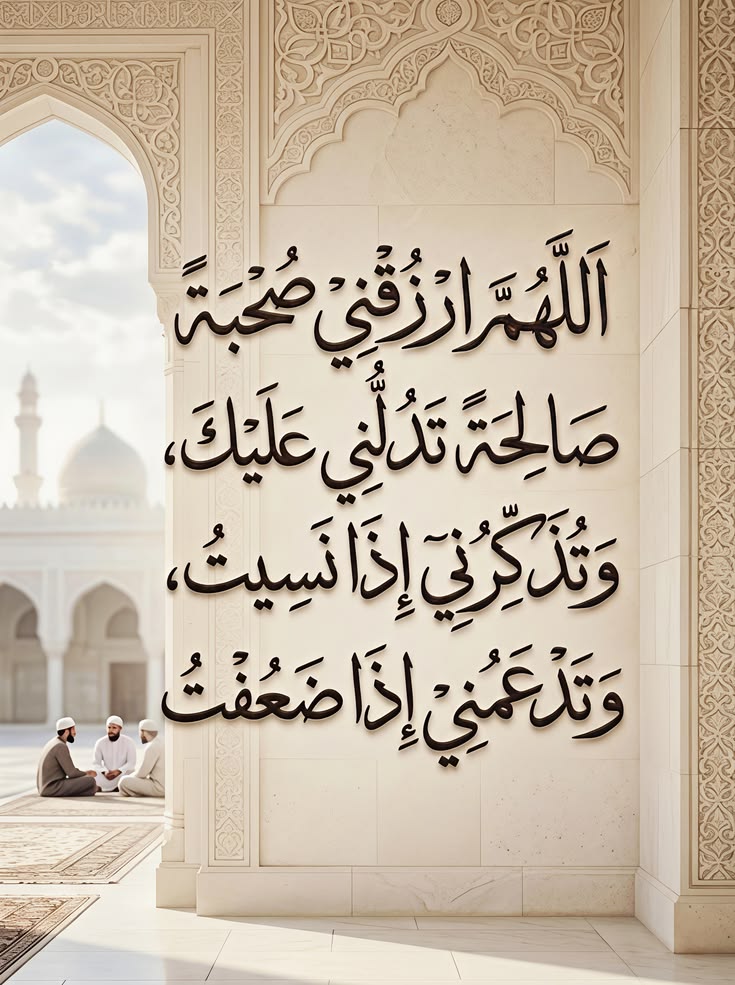 اَللّٰهُمَّ ارْزُقْنِي صُحْبَةً
صَالِحَةً تَدُلُّنِي عَلَيْكَ،
وَتُذَكِّرُنِي إِذَا نَسِيتُ،
وَتَدْعَمُنِي إِذَا ضَعُفْتُ